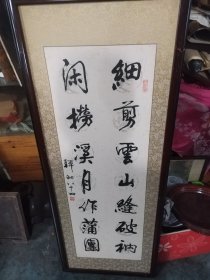 細剪雲山縫破衲
闲撈溪月作蒲團